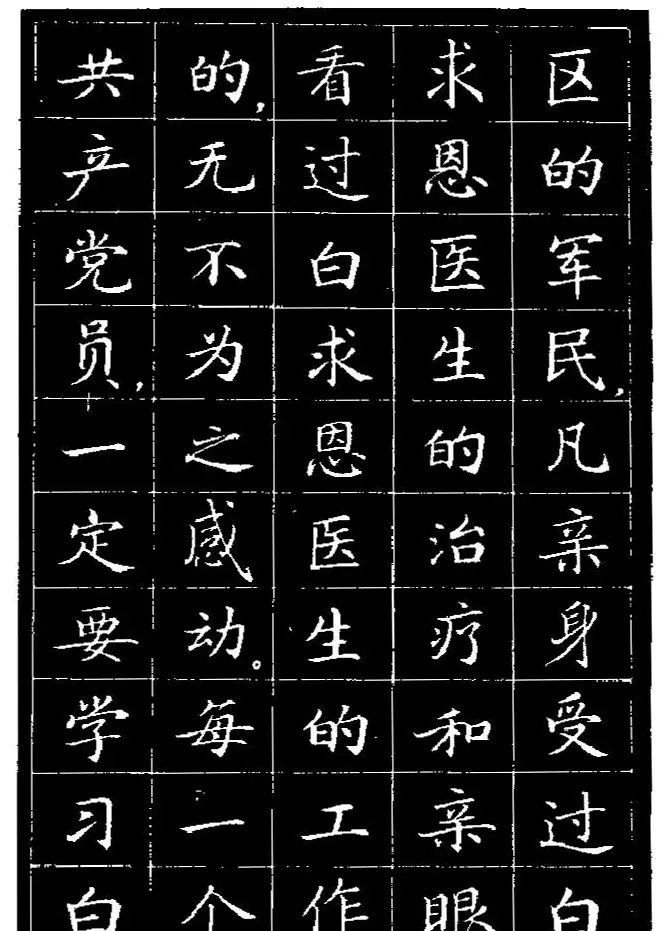 区的军民，凡亲身受过白
求恩医生的治疗和亲眼
看过白求恩医生的工作
的，无不为之感动。每一个
共产党员，一定要学习白